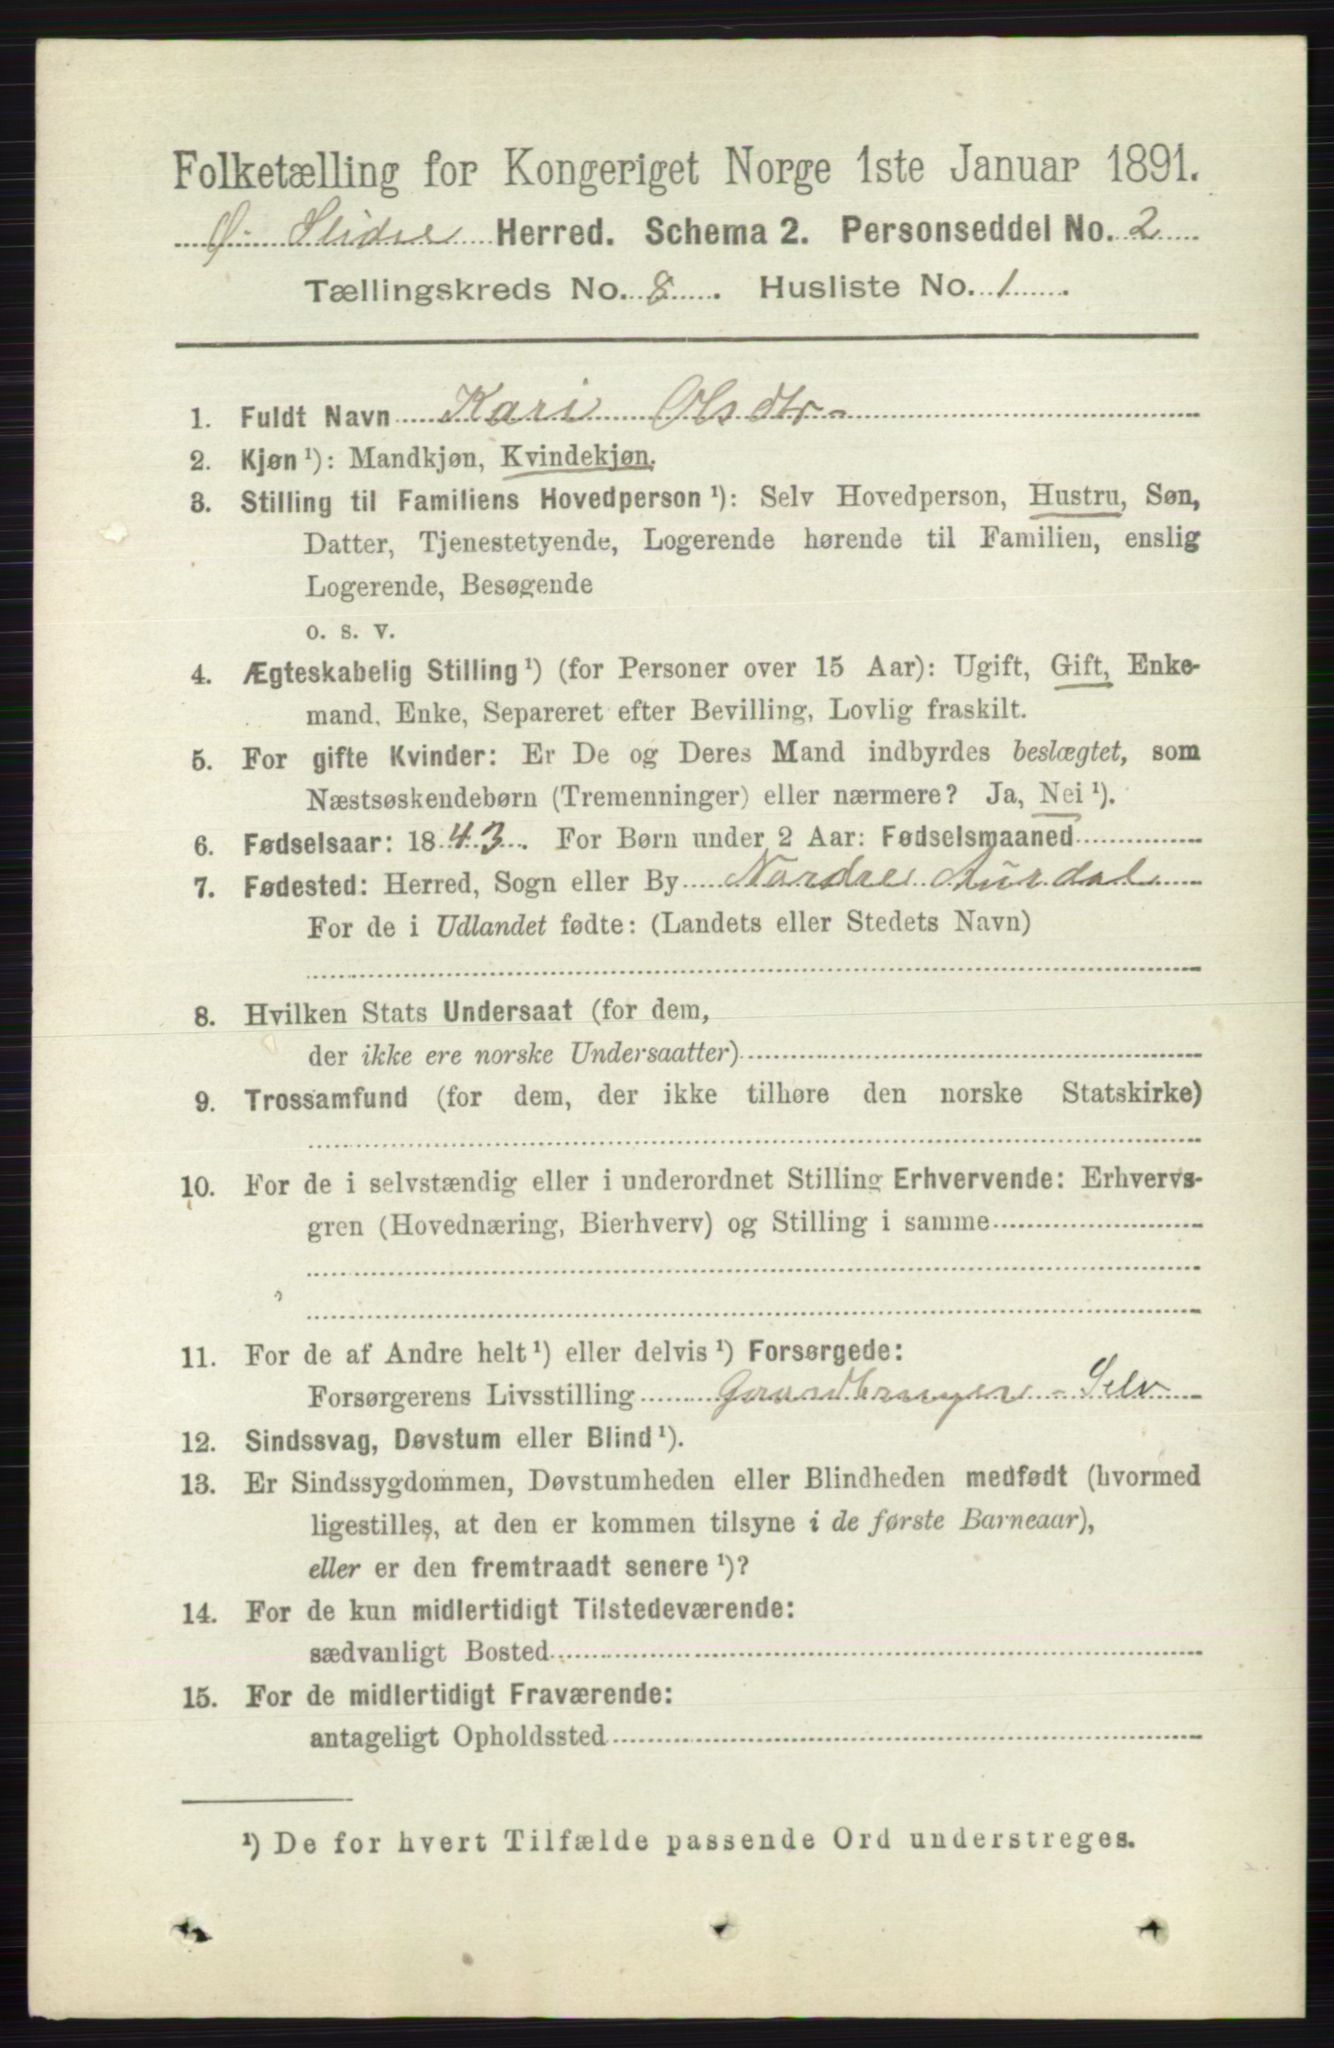 Folketælling for Kongeriget Norge 1ste Januar 1891.
Ø. Slidre Herred. Schema 2. Personseddel No. 2
Tællingskreds No. 8. Husliste No. 1.
1. Fuldt Navn Kari Olsdtr
2. Kjøn¹): Mandkjøn, Kvindekjøn.
3. Stilling til Familiens Hovedperson¹): Selv Hovedperson, Hustru, Søn,
Datter, Tjenestetyende, Logerende hørende til Familien, enslig
Logerende, Besøgende
o. s. v.
4. Ægteskabelig Stilling¹) (for Personer over 15 Aar): Ugift, Gift, Enke-
mand, Enke, Separeret efter Bevilling, Lovlig fraskilt.
5. For gifte Kvinder: Er De og Deres Mand indbyrdes beslægtet, som
Næstsøskendebørn (Tremenninger) eller nærmere? Ja, Nei¹).
6. Fødselsaar: 1843. For Børn under 2 Aar: Fødselsmaaned
7. Fødested: Herred, Sogn eller By Nordre Aurdal
For de i Udlandet fødte: (Landets eller Stedets Navn)
8. Hvilken Stats Undersaat (for dem,
der ikke ere norske Undersaatter)
9. Trossamfund (for dem, der ikke tilhøre den norske Statskirke)
10. For de i selvstændig eller i underordnet Stilling Erhvervende: Erhvervs-
gren (Hovednæring, Bierhverv) og Stilling i samme
11. For de af Andre helt¹) eller delvis¹) Forsørgede:
Forsørgerens Livsstilling Gaardbruger - Selv
12. Sindssvag, Døvstum eller Blind¹).
13. Er Sindssygdommen, Døvstumheden eller Blindheden medfødt (hvormed
ligestilles, at den er kommen tilsyne i de første Barneaar),
eller er den fremtraadt senere¹)?
14. For de kun midlertidigt Tilstedeværende:
sædvanligt Bosted
15. For de midlertidigt Fraværende:
antageligt Opholdssted
¹) De for hvert Tilfælde passende Ord understreges.